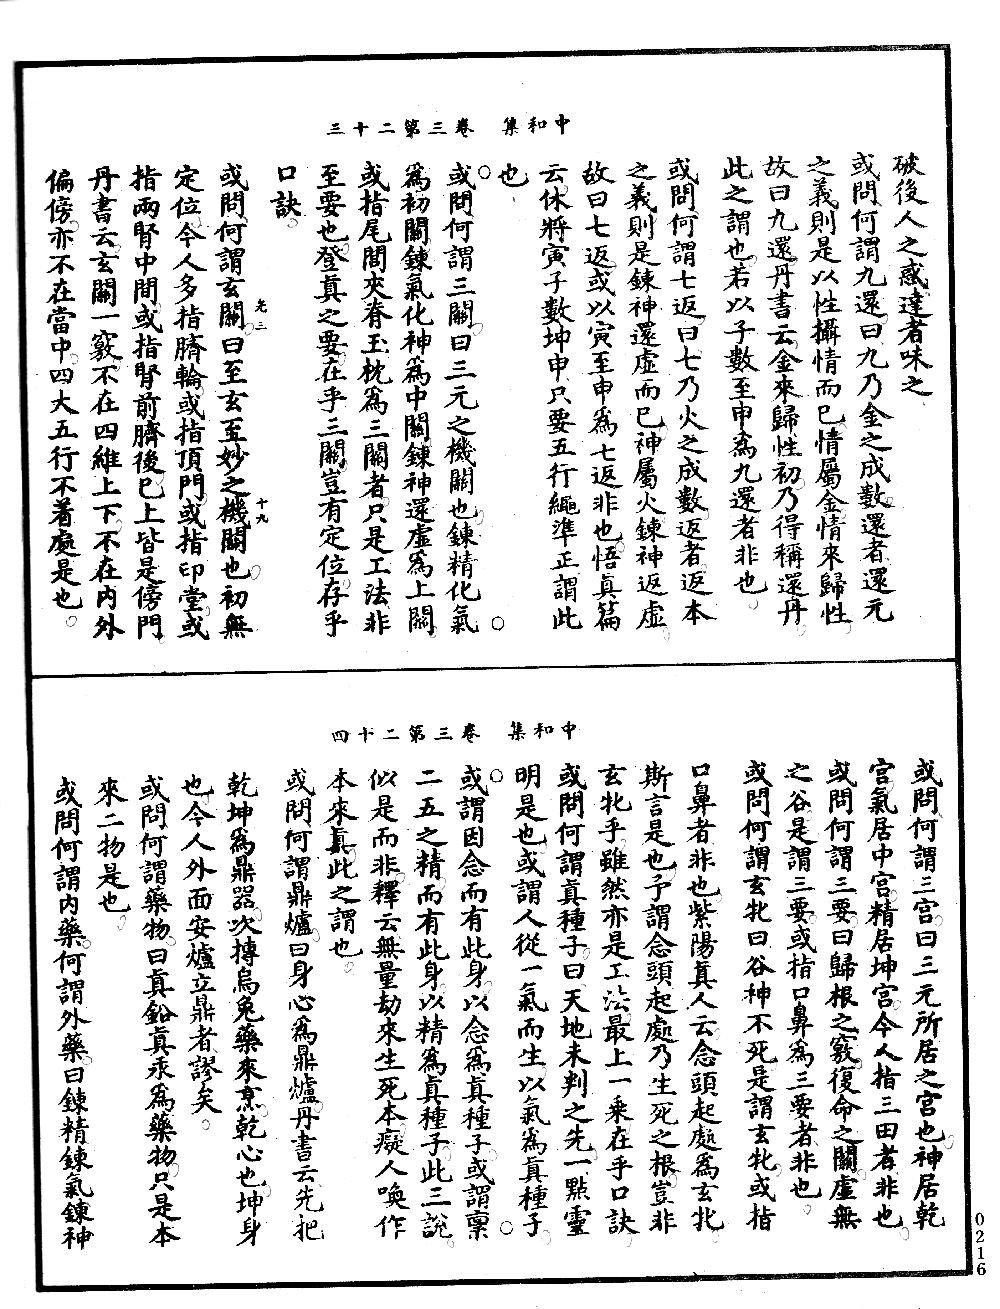 中和集　卷三第二十三
破後人之惑達者味之
或問何謂九還曰九乃金之成數還者還元
之義則是以性攝情而已情屬金情來歸性
故曰九還丹書云金來歸性初乃得稱還丹
此之謂也若以子數至申爲九還者非也
或問何謂七返曰七乃火之成數返者返本
之義則是鍊神還虛而已神屬火鍊神返虛
故曰七返或以寅至申爲七返非也悟真篇
云休將寅子數坤申只要五行繩準正謂此
也
或問何謂三關曰三元之機關也鍊精化氣
爲初關鍊氣化神爲中關鍊神還虛爲上關
或指尾閭夾脊玉枕爲三關者只是工法非
至要也登真之要在乎三關豈有定位存乎
口訣
光三　十九
或問何謂玄關曰至玄至妙之機關也初無
定位今人多指臍輪或指頂門或指印堂或
指兩腎中間或指腎前臍後已上皆是傍門
丹書云玄關一竅不在四維上下不在內外
偏傍亦不在當中四大五行不着處是也
中和集　卷三第二十四
或問何謂三宮曰三元所居之宮也神居乾
宮氣居中宮精居坤宮今人指三田者非也
或問何謂三要曰歸根之竅復命之關虛無
之谷是謂三要或指口鼻爲三要者非也
或問何謂玄牝曰谷神不死是謂玄牝或指
口鼻者非也紫陽真人云念頭起處爲玄牝
斯言是也予謂念頭起處乃生死之根豈非
玄牝乎雖然亦是工法最上一乘在乎口訣
或問何謂真種子曰天地未判之先一點靈
明是也或謂人從一氣而生以氣爲真種子
或謂因念而有此身以念爲真種子或謂稟
二五之精而有此身以精爲真種子此三說
似是而非釋云無量劫來生死本癡人喚作
本來真此之謂也
或問何謂鼎爐曰身心爲鼎爐丹書云先把
乾坤爲鼎器次摶烏兔藥來烹乾心也坤身
也今人外面安爐立鼎者謬矣
或問何謂藥物曰真鉛真汞爲藥物只是本
來二物是也
或問何謂內藥何謂外藥曰鍊精鍊氣鍊神
0216